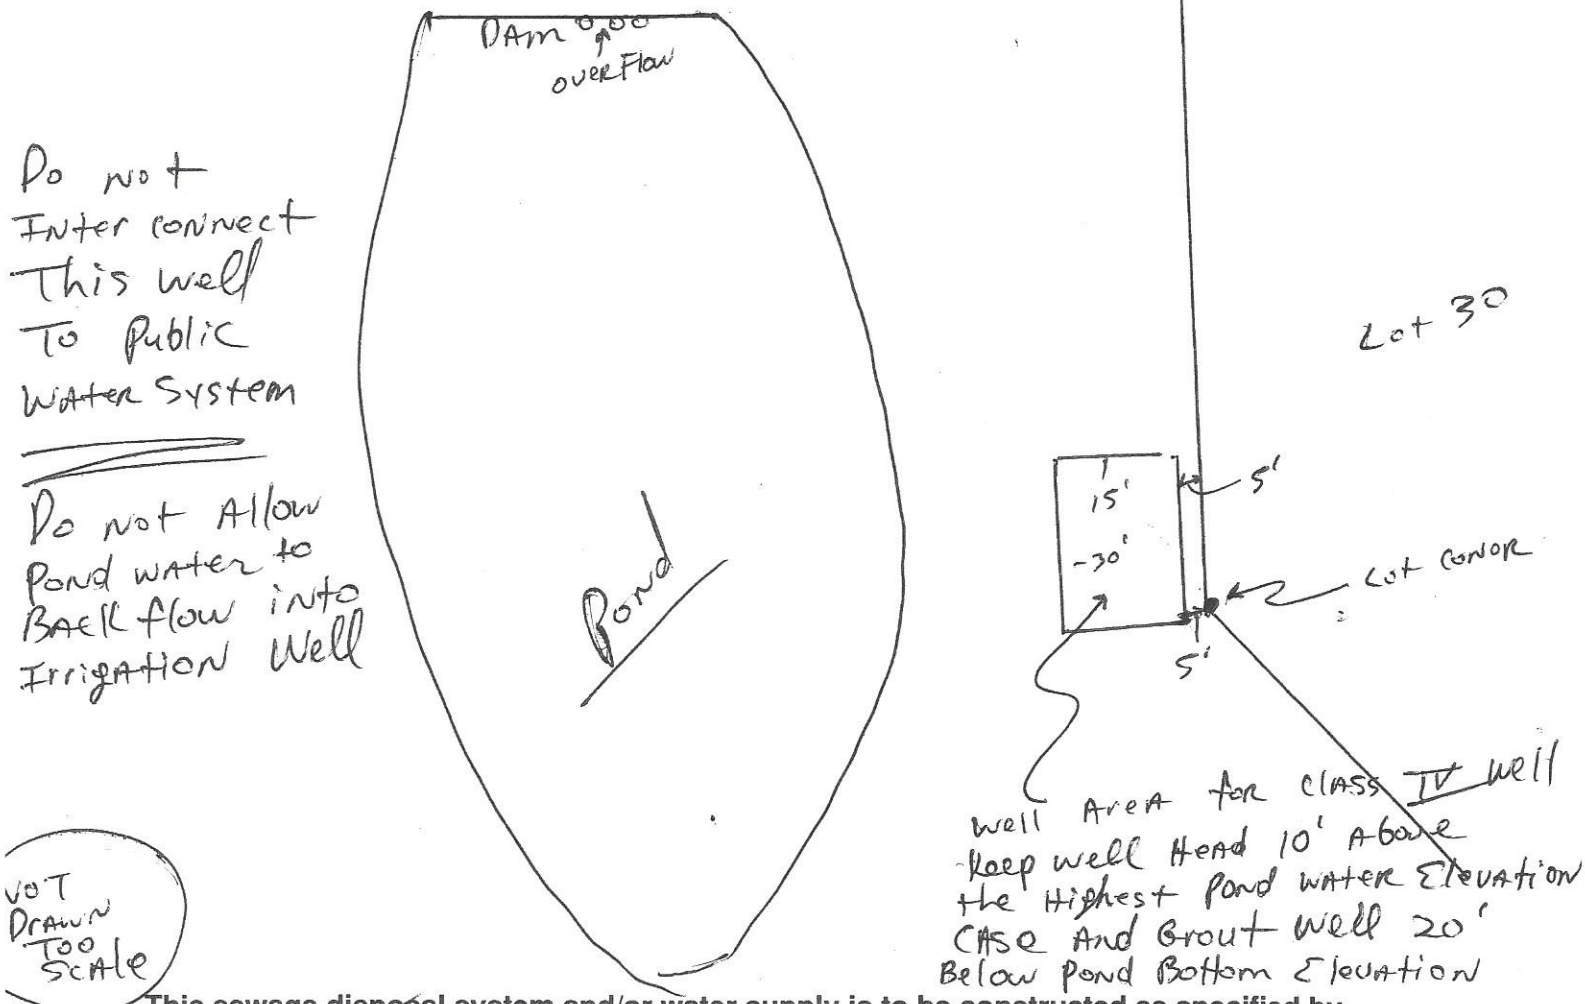 DAM
overflow
Do not
Inter connect
This well
To Public
Water System
Do not Allow
Pond water to
Back flow into
Irrigation Well
Pond
Lot 30
15'
-30'
5'
Lot conor
5'
well Area for Class IV well
Keep well Head 10' Above
the Highest Pond water Elevation
Case And Grout Well 20'
Below Pond Bottom Elevation
NOT
Drawn
Too
Scale
This sewage disposal system and/or water supply is to be constructed as specified by